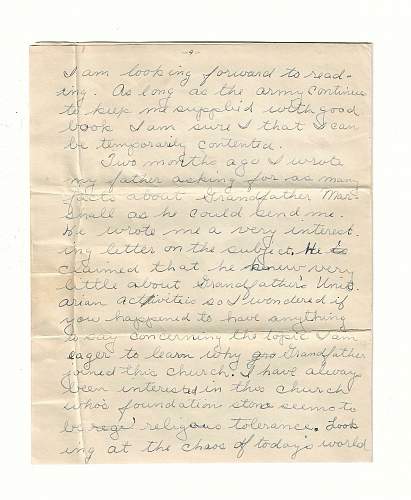 -4-
I am looking forward to read-
ing. As long as the army continue
to keep me supplied with good
book I am sure I that I can
be temporarily contented.
Two months ago I wrote
my father asking for as many
facts about Grandfather Mar-
shall as he could send me.
He wrote me a very interest-
ing letter on the subject. He
claimed that he knew very
little about Grandfather's Unit-
arian activities so I wondered if
you happened to have anything
to say concerning the topic I am
eager to learn why Grandfather
joined this church. I have always
been interested in this church
who's foundation stone seems to
be religious tolerance. Look
ing at the chaos of today's world